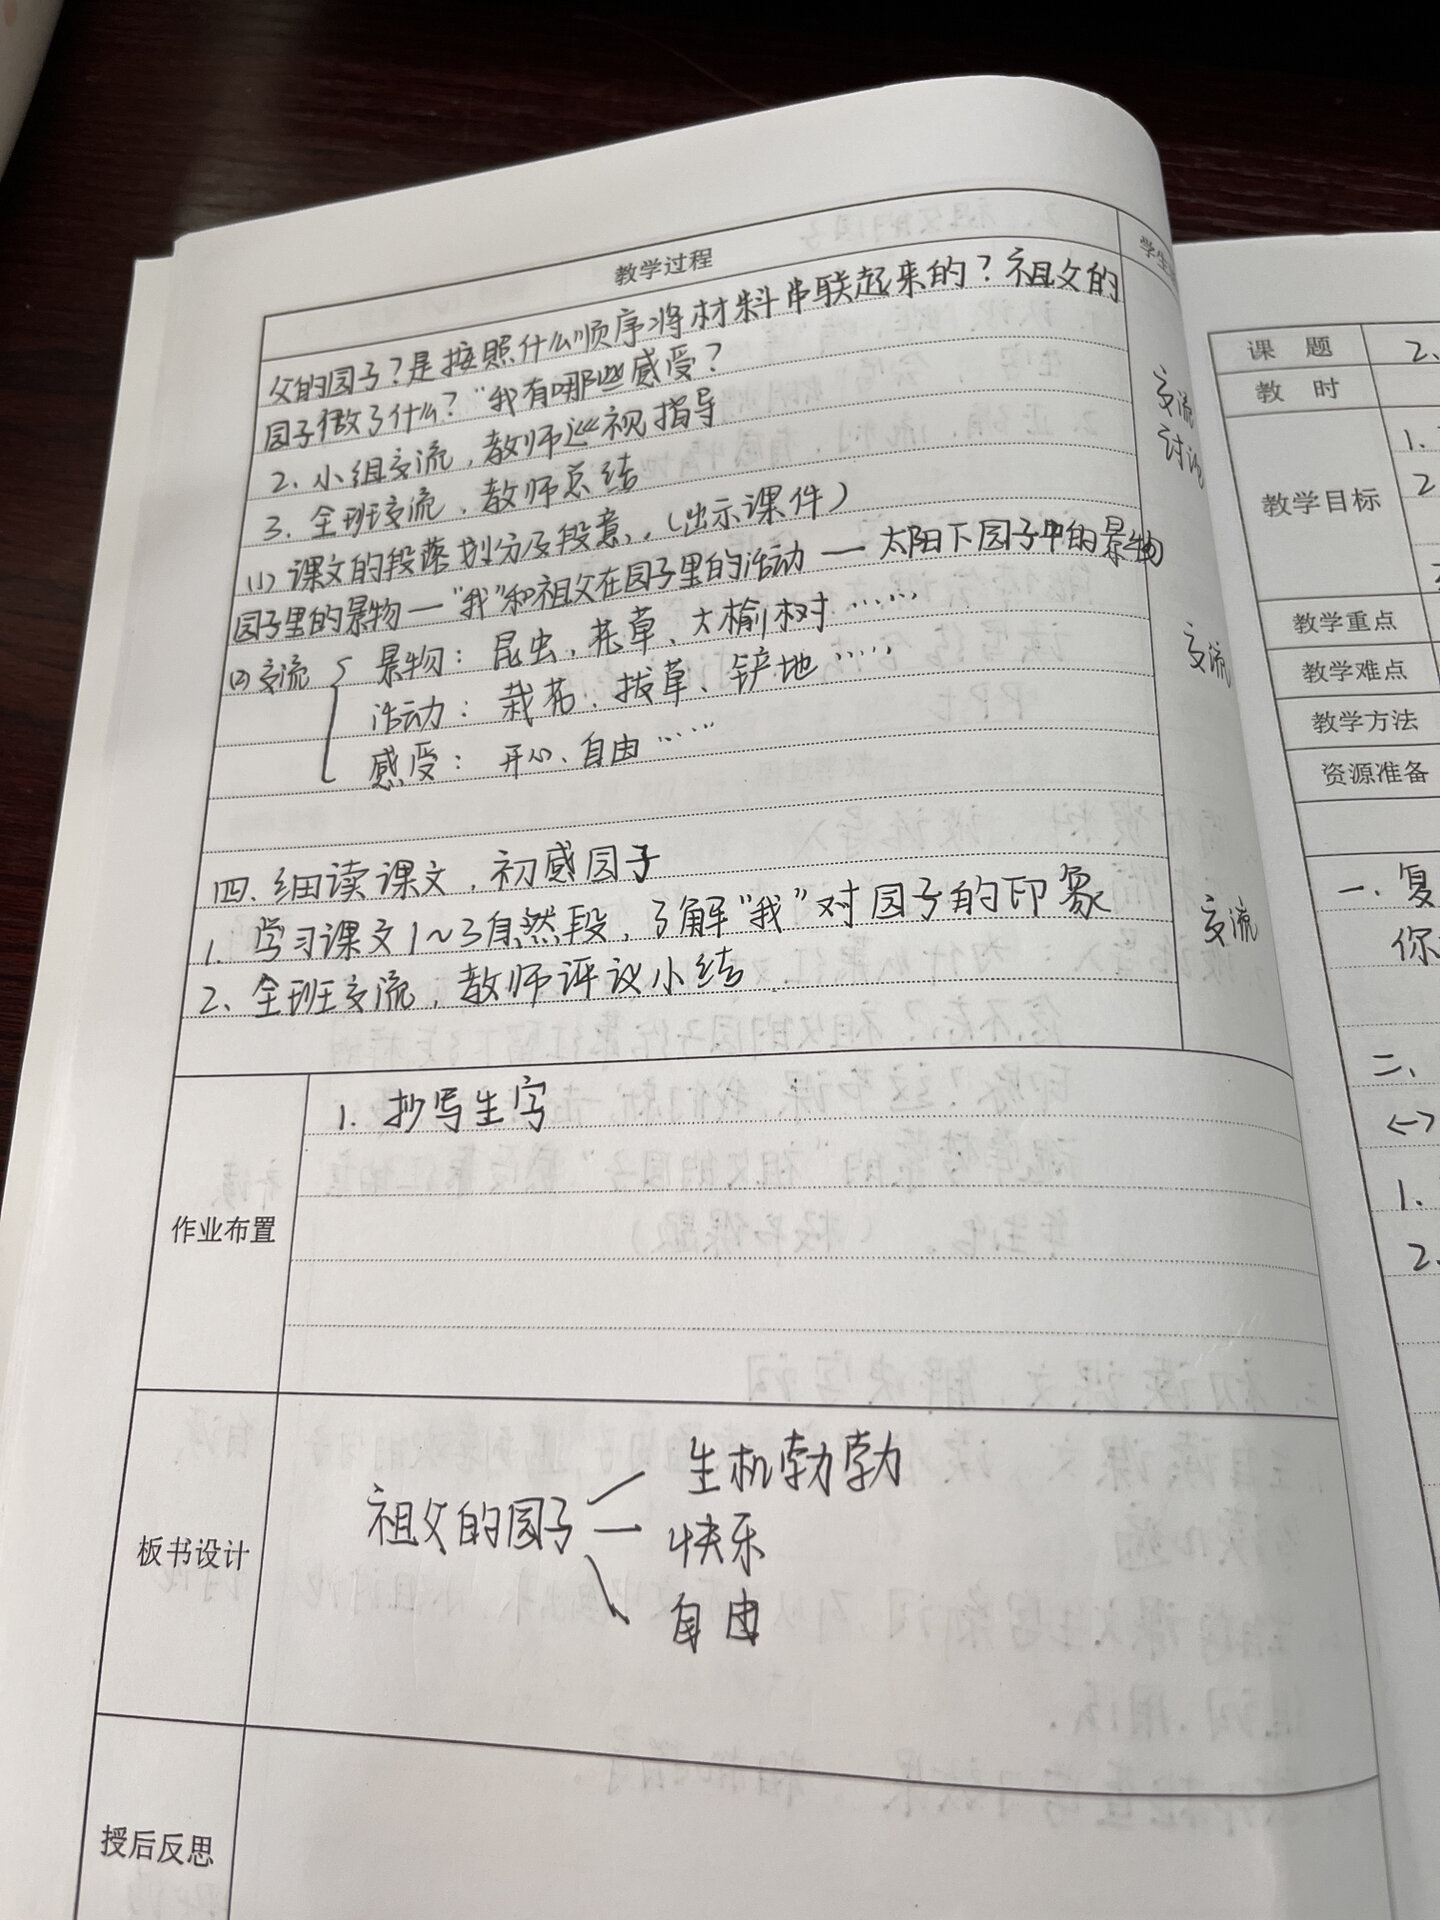 教学过程
学生
父的园子？是按照什么顺序将材料串联起来的？祖父的
园子做了什么？"我有哪些感受？
2、小组交流，教师巡视指导
3、全班交流，教师总结
(1)课文的段落划分及段意、(出示课件)
园子里的景物—"我"和祖父在园子里的活动—太阳下园子中的景物
(2)交流{景物：昆虫、花草、大榆树……
活动：栽花、拔草、铲地……
感受：开心、自由……
四、细读课文，初感园子
1、学习课文1～3自然段，了解"我"对园子的印象
2、全班交流，教师评议小结
交流
讨论
交流
交流
作业布置
1、抄写生字
板书设计
祖父的园子
生机勃勃
快乐
自由
授后反思
课 题
2、
教 时
教学目标
1.
2
教学重点
教学难点
教学方法
资源准备
一、复
你
二、
1.
2.